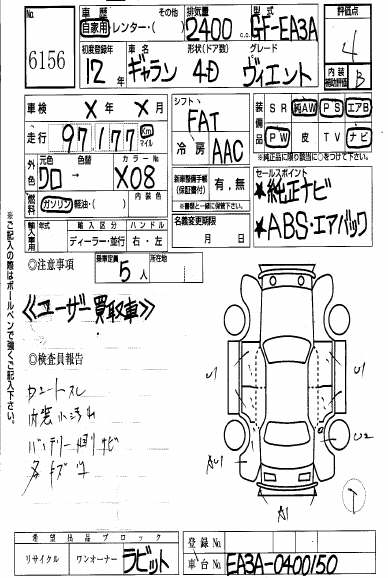 No.
6156
車歴
その他
自家用・レンタカー・( )
排気量
2400 c.c.
型式
GF-EA3A
評価点
4
初度登録年
12年
車名
ギャラン
形状(ドア数)
4D
グレード
ヴィエント
内装
補助評価
B
車検 X年 X月
走行 97177 Km マイル
外色
元色 クロ
色替 →
カラーNo. X08
燃料
ガソリン・軽油・( )
内装色
輸入車用
年式
輸入区分
ディーラー・並行
ハンドル
右・左
シフト
FAT
冷房
AAC
装備品
SR 純AW PS エアB
PW 皮 TV ナビ
※純正品に限り該当に○をつけて下さい。
新車整備手帳(保証書付)
有・無
※書類と一緒に保管下さい。
名義変更期限
月 日
セールスポイント
★純正ナビ
★ABS・エアバック
◎注意事項
乗車定員
5人
≪ユーザー買取車≫
※ご記入の際はボールペンで強くご記入下さい。
◎検査員報告
シートスレ
内装小汚れ
バッテリー廻りサビ
U1
U1
U2
AU1
A1
希望出品ブロック
リサイクル
ワンオーナー
ラビット
登録No.
車台No.
EA3A-0400150